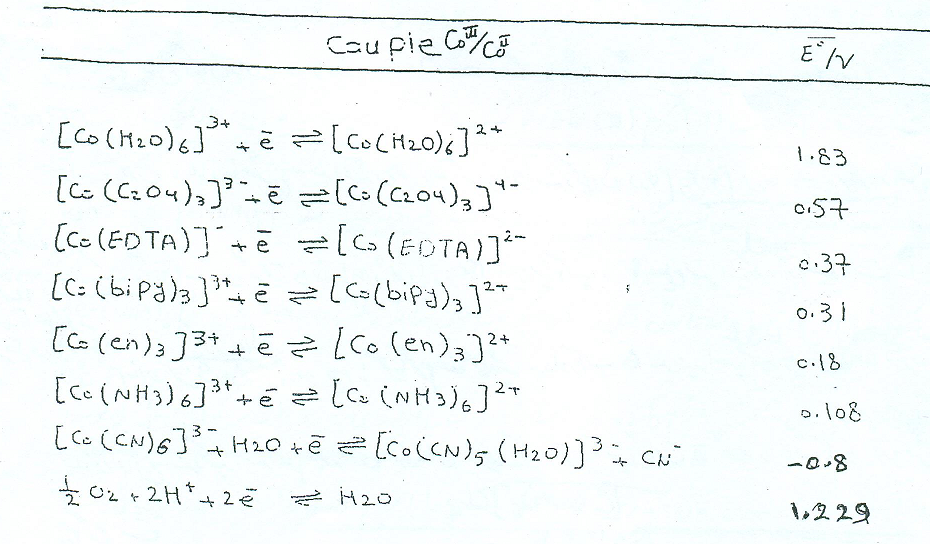 Couple Coᴵᴵᴵ/Coᴵᴵ E°/V
[Co(H2O)6]³⁺ + ē ⇌ [Co(H2O)6]²⁺ 1.83
[Co(C2O4)3]³⁻ + ē ⇌ [Co(C2O4)3]⁴⁻ 0.57
[Co(EDTA)]⁻ + ē ⇌ [Co(EDTA)]²⁻ 0.37
[Co(bipy)3]³⁺ + ē ⇌ [Co(bipy)3]²⁺ 0.31
[Co(en)3]³⁺ + ē ⇌ [Co(en)3]²⁺ 0.18
[Co(NH3)6]³⁺ + ē ⇌ [Co(NH3)6]²⁺ 0.108
[Co(CN)6]³⁻ + H2O + ē ⇌ [Co(CN)5(H2O)]³⁻ + CN⁻ -0.8
½ O2 + 2H⁺ + 2ē ⇌ H2O 1.229